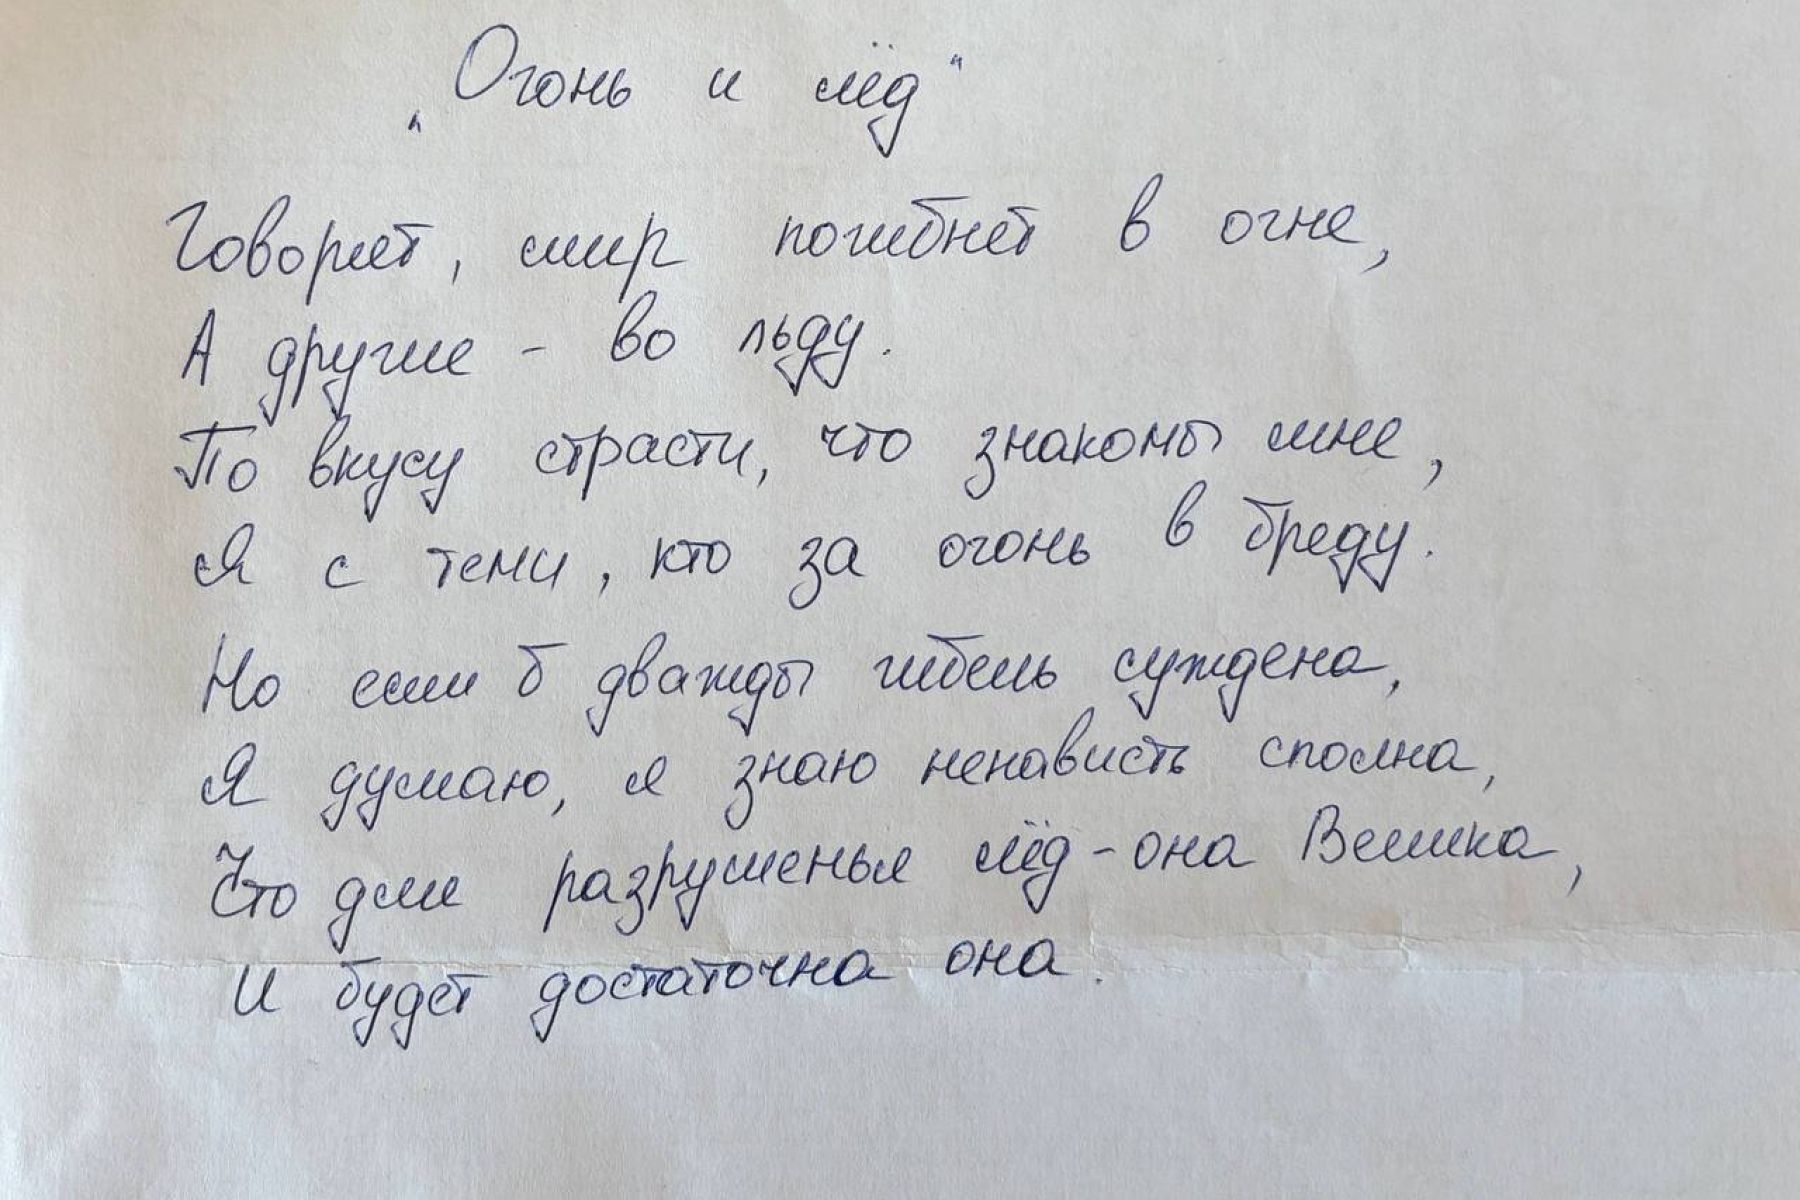 „Огонь и лёд"
Говорят, мир погибнет в огне,
А другие - во льду.
По вкусу страсти, что знакомы мне,
Я с теми, кто за огонь в бреду.
Но если б дважды гибель суждена,
Я думаю, я знаю ненависть сполна,
Что для разрушенья лёд - она Велика,
И будет достаточна она.